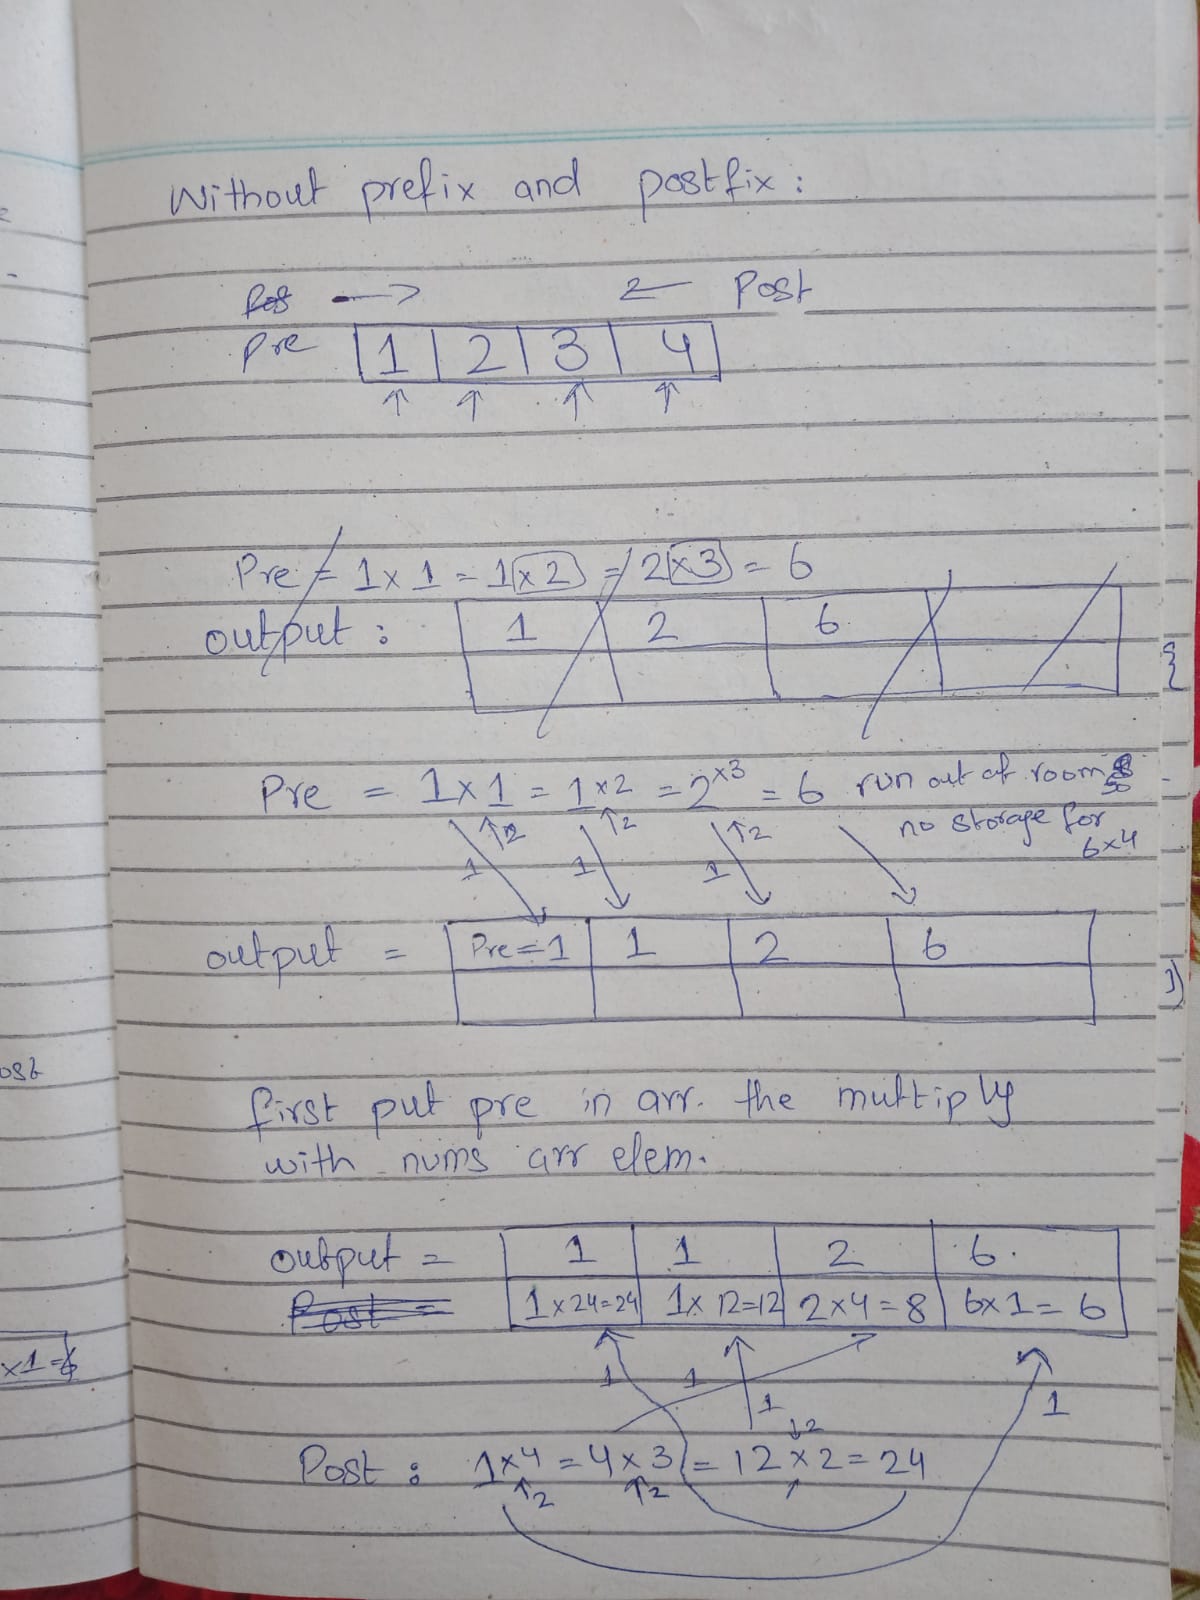 Without prefix and postfix :
Pos → ← Post
Pre 1 2 3 4
↑ ↑ ↑ ↑
Pre = 1 x 1 = 1 x 2 = 2 x 3 = 6
output : 1 2 6
Pre = 1 x 1 = 1 x 2 = 2 x 3 = 6 run out of room so
no storage for
6x4
↑2 ↑2 ↑2
1 1 1
output = Pre = 1 1 2 6
first put pre in arr. the multiply
with nums arr elem.
output = 1 1 2 6.
Post = 1 x 24=24 1x 12=12 2x4=8 6x1=6
1 1 1 1
↓2
Post : 1x4 = 4 x 3 = 12 x 2 = 24
↑2 ↑2
ost
x1=6